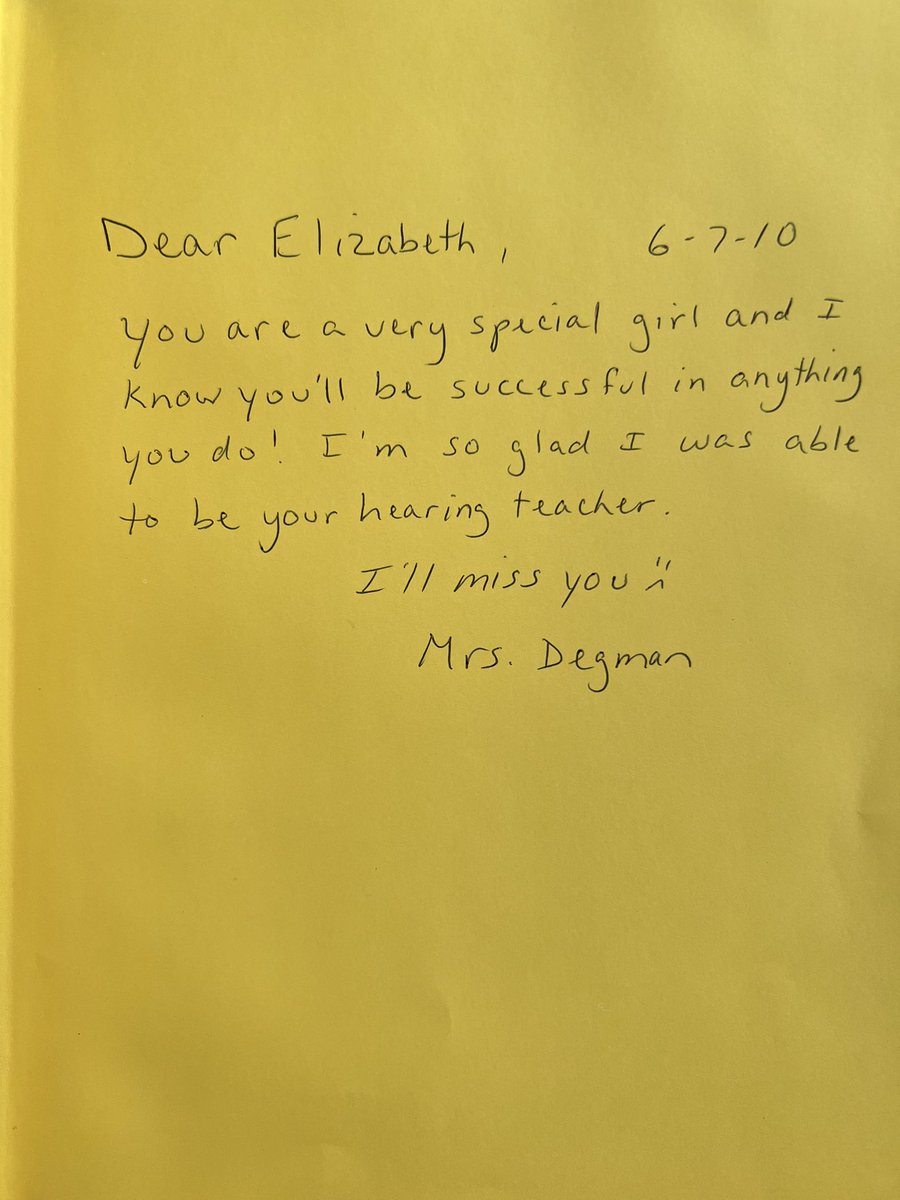 Dear Elizabeth, 6-7-10
you are a very special girl and I
know you'll be successful in anything
you do! I'm so glad I was able
to be your hearing teacher.
I'll miss you :(
Mrs. Degman